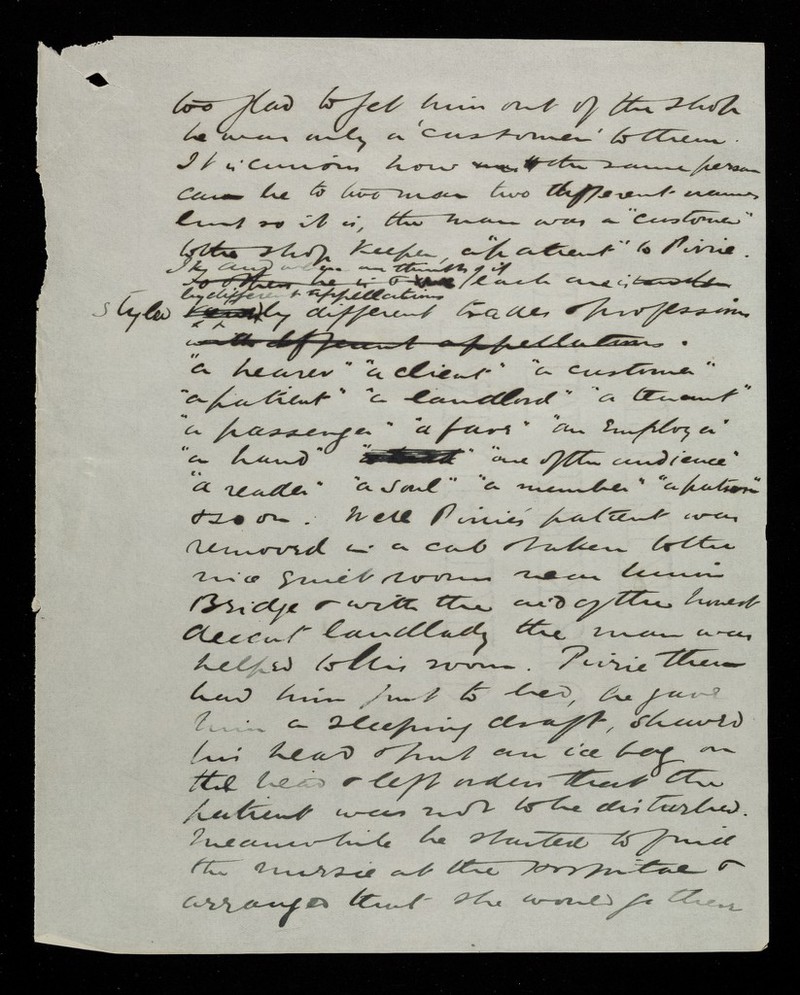 too glad to get him out of the shop
he was only a 'customer' to them.
It is curious how the same person
can be to two men two different names
but so it is, the man was a "customer"
to the shop keeper, a "patient" to Pirrie.
/each one is
by different appellations
styled by different trades & professions
with different appellations.
"a hearer" "a client" "a customer"
"a patient" "a landlord" "a tenant"
"a passenger" "a fare" "an Employer"
"a hand" "one of the audience"
"a reader" "a soul" "a member" "a patron"
& so on. Well Pirrie's patient was
removed in a cab & taken to the
nice quiet rooms near Union
Bridge & with the aid of the honest
decent landlady the man was
helped to his room. Pirrie then
had him put to bed, he gave
him a sleeping draft, shaved
his head & put an ice bag on
the head & left orders that the
patient was not to be disturbed.
Meanwhile he started to find
the nurse at the hospital &
arranged that she would go there